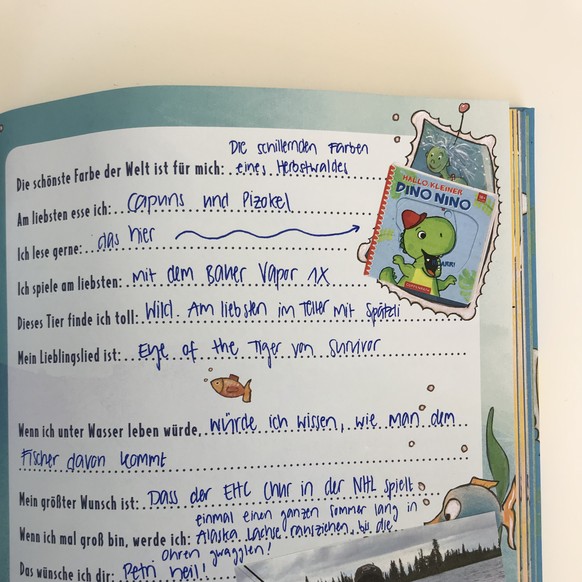 Die schillernden Farben
Die schönste Farbe der Welt ist für mich: eines Herbstwaldes
Am liebsten esse ich: Capuns und Pizokel
Ich lese gerne: das hier
HALLO KLEINER
DINO NINO
Ich spiele am liebsten: mit dem Bauer Vapor 1X
Dieses Tier finde ich toll: Wild. Am liebsten im Teller mit Spätzli
Mein Lieblingslied ist: Eye of the Tiger von Survivor
Wenn ich unter Wasser leben würde, würde ich wissen, wie man dem
Fischer davon kommt
Mein größter Wunsch ist: Dass der EHC Chur in der NHL spielt
einmal einen ganzen Sommer lang in
Wenn ich mal groß bin, werde ich: Alaska Lachse rausziehen, bis die
Ohren gwagglen!
Das wünsche ich dir: Petri heil!